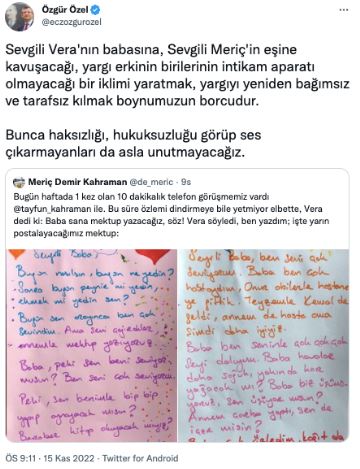 Özgür Özel
@eczozgurozel
Sevgili Vera'nın babasına, Sevgili Meriç'in eşine
kavuşacağı, yargı erkinin birilerinin intikam aparatı
olmayacağı bir iklimi yaratmak, yargıyı yeniden bağımsız
ve tarafsız kılmak boynumuzun borcudur.
Bunca haksızlığı, hukuksuzluğu görüp ses
çıkarmayanları da asla unutmayacağız.
Meriç Demir Kahraman @de_meric · 9s
Bugün haftada 1 kez olan 10 dakikalık telefon görüşmemiz vardı
@tayfun_kahraman ile. Bu süre özlemi dindirmeye bile yetmiyor elbette, Vera
dedi ki: Baba sana mektup yazacak, söz! Vera söyledi, ben yazdım; işte yarın
postalayacağımız mektup:
Sevgili Baba,
Bugün nasılsın, bugün ne yedin?
Sonra bugün peynir mi yedin,
ekmek mi yedin sen?
Bugün sen arayınca ben çok
sevindim. Ama seni
annemle mektup
Baba, peki sen beni seviyor
musun? Ben seni çok seviyorum.
Peki, sen benimle bip bip
yapıp oynayacak mısın?
Beraber kitap okuyacak mıyız?
Sevgili Baba, ben seni çok
seviyorum. Baba ben çok
hastaydım, Onur abilerle hastane
ye gittik. Teyzemle Kemal de
geldi, annem de hasta ama
şimdi daha iyiyiz.
Baba ben seninle çok çok çok
şeyi Baba havalar
daha soğuk, yakında kar
yağacak mı? Baba biz üşüyo
ruz, sen üşüyor musun?
Annem çorba yaptı, sen de
içer misin?
ÖS 9:11 · 15 Kas 2022 · Twitter for Android